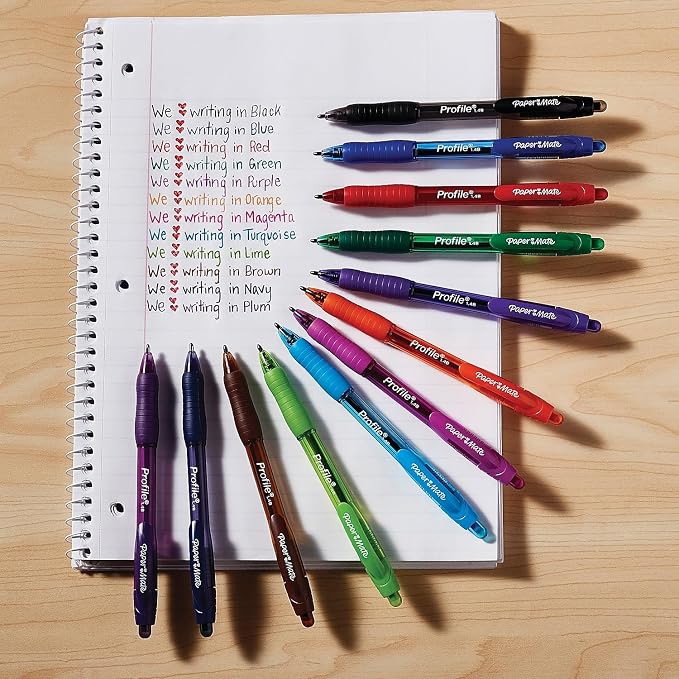 We ❤ writing in Black
We ❤ writing in Blue
We ❤ writing in Red
We ❤ writing in Green
We ❤ writing in Purple
We ❤ writing in Orange
We ❤ writing in Magenta
We ❤ writing in Turquoise
We ❤ writing in Lime
We ❤ writing in Brown
We ❤ writing in Navy
We ❤ writing in Plum
Profile® 1.4B Paper Mate
Profile® 1.4B Paper Mate
Profile® 1.4B Paper Mate
Profile® 1.4B Paper Mate
Profile® 1.4B Paper Mate
Profile® 1.4B Paper Mate
Profile® 1.4B Paper Mate
Profile® 1.4B Paper Mate
Profile® 1.4B Paper Mate
Profile® 1.4B Paper Mate
Profile® 1.4B Paper Mate
Profile® 1.4B Paper Mate